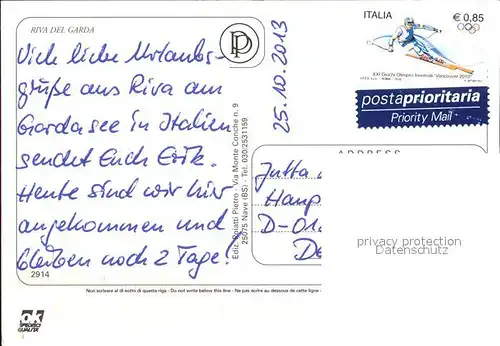 RIVA DEL GARDA
Viele liebe Urlaubs-
grüße aus Riva am
Gardasee in Italien
sendet Euch Erik.
Heute sind wir hier
angekommen und
bleiben noch 2 Tage!
2914
Ediz. Poiatti Pietro - Via Monte Conche n. 9
25075 Nave (BS) - Tel. 030/2531159
25.10.2013
ITALIA € 0,85
XXI Giochi Olimpici Invernali "Vancouver 2010"
postaprioritaria
Priority Mail
ADDRESS
Jutta
Haup
D-01.
De
privacy protection
Datenschutz
Non scrivere al di sotto di questa riga - Do not write below this line - Ne pas écrire au dessous de cette ligne
ok
SPEDISCI
QUALITÀ